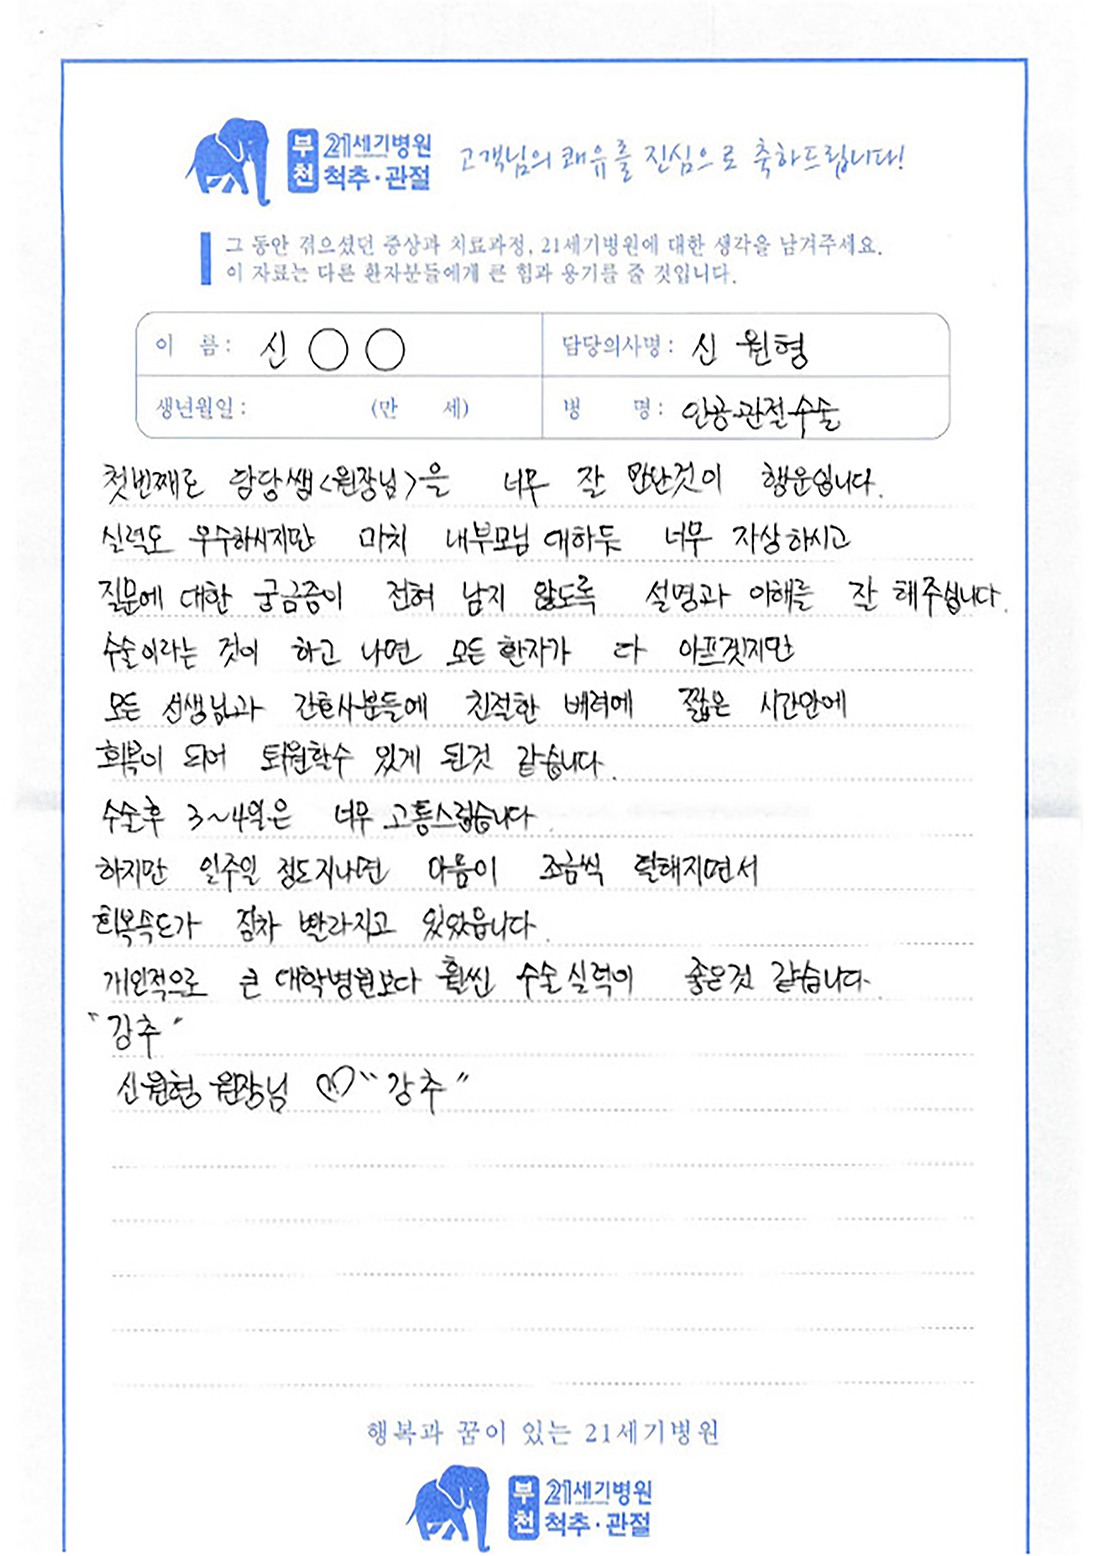 부천 21세기병원 척추·관절 고객님의 쾌유를 진심으로 축하드립니다!
그 동안 겪으셨던 증상과 치료과정, 21세기병원에 대한 생각을 남겨주세요.
이 자료는 다른 환자분들에게 큰 힘과 용기를 줄 것입니다.
이 름 : 신 ○ ○ 담당의사명 : 신 원형
생년월일 : (만 세) 병 명 : 인공관절수술
첫번째로 담당쌤<원장님>을 너무 잘 만난것이 행운입니다.
실력도 우수하시지만 마치 내부모님 대하듯 너무 자상하시고
질문에 대한 궁금증이 전혀 남지 않도록 설명과 이해를 잘 해주십니다.
수술이라는 것이 하고 나면 모든 환자가 다 아프겟지만
모든 선생님과 간호사분들에 친절한 배려에 짧은 시간안에
회복이 되어 퇴원할수 있게 된것 같습니다.
수술후 3~4일은 너무 고통스럽습니다.
하지만 일주일 정도지나면 아픔이 조금씩 덜해지면서
회복속도가 점차 빨라지고 있었읍니다.
개인적으로 큰 대학병원보다 훨씬 수술실력이 좋은것 같습니다.
"강추"
신원형 원장님 ♡ "강추"
행복과 꿈이 있는 21세기병원
부천 21세기병원 척추·관절